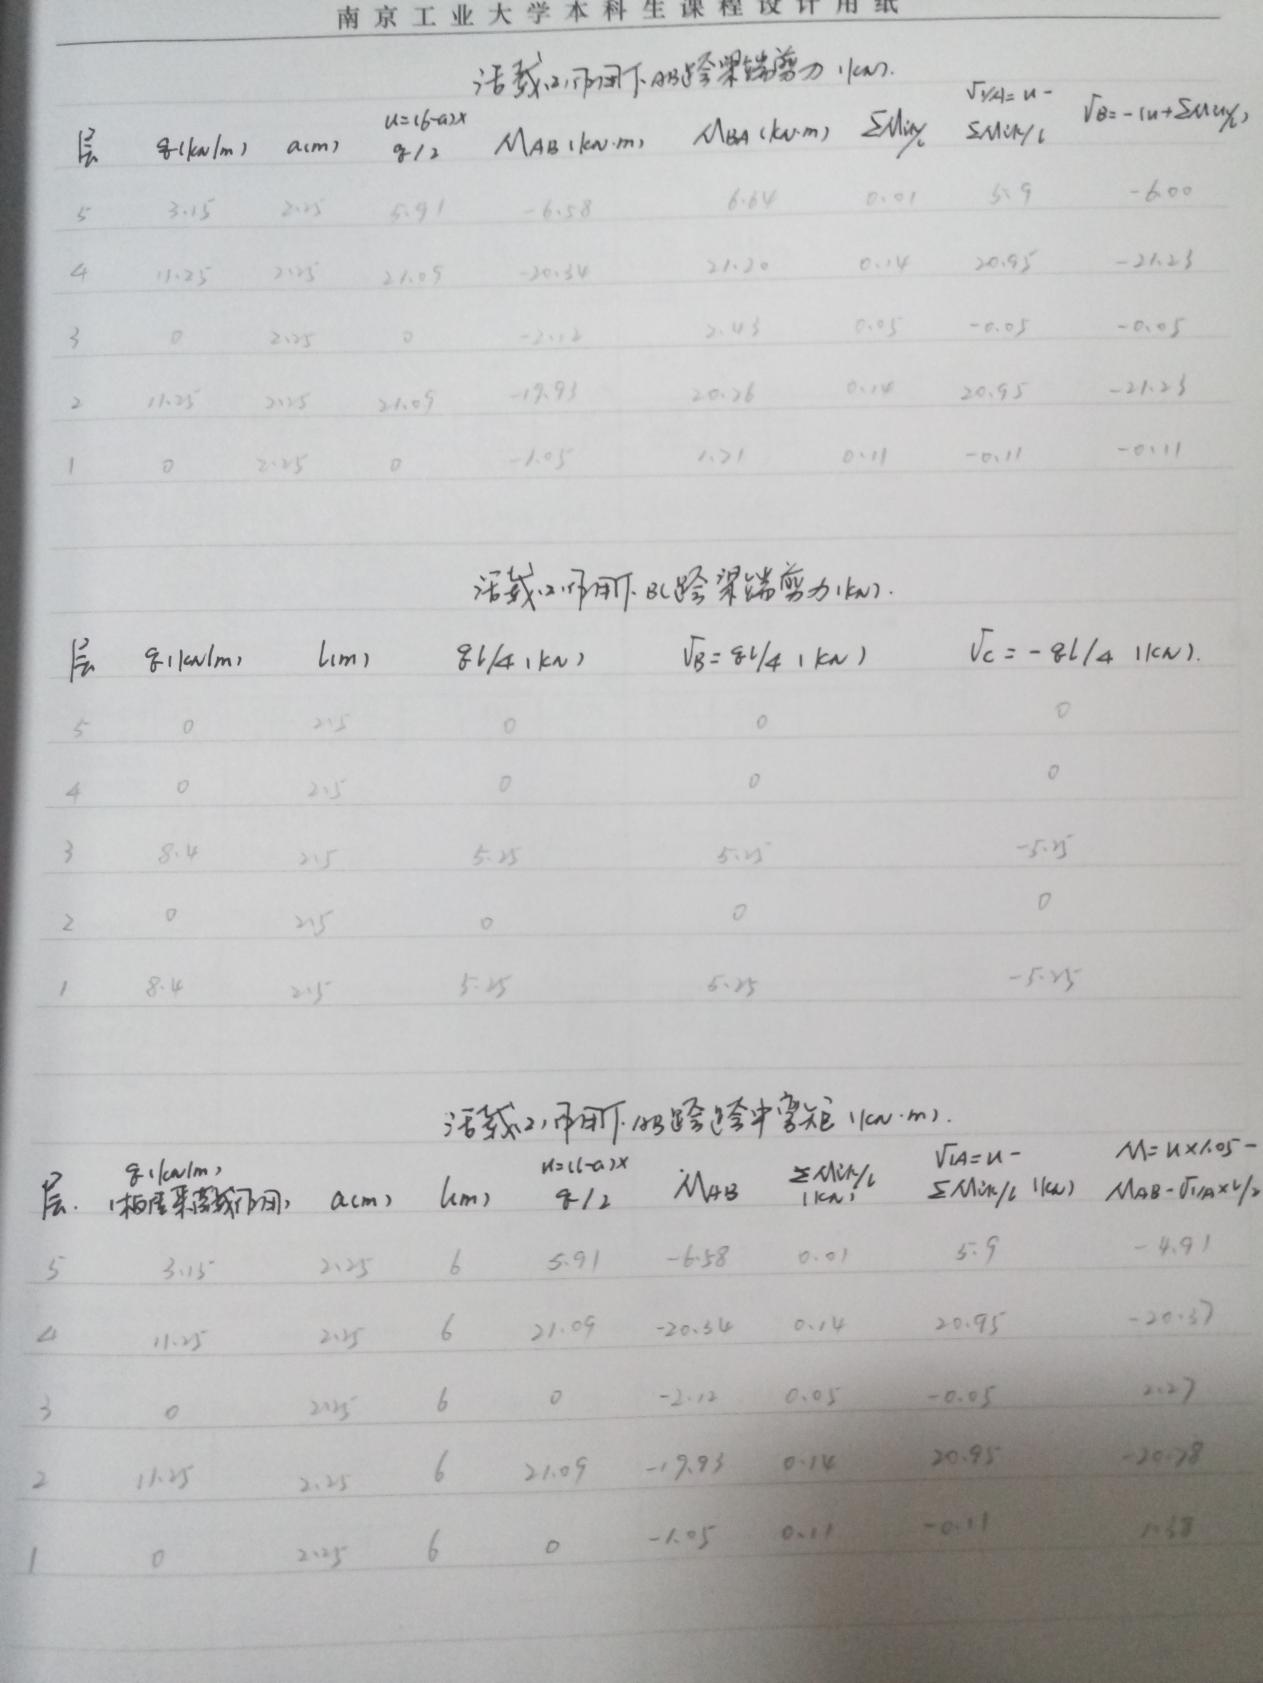 南京工业大学本科生课程设计用纸
活载(2)作用下AB跨梁端剪力(kN).
层 q(kN/m) a(m) u=(6-a)×q/2 MAB(kN·m) MBA(kN·m) ΣMik/l V1/A=u-ΣMik/l VB=-(u+ΣMik/l)
5 3.15 2.25 5.91 -6.58 6.64 0.01 5.9 -6.00
4 11.25 2.25 21.09 -20.34 21.20 0.14 20.95 -21.23
3 0 2.25 0 -2.12 2.43 0.05 -0.05 -0.05
2 11.25 2.25 21.09 -19.93 20.76 0.14 20.95 -21.23
1 0 2.25 0 -1.05 1.71 0.11 -0.11 -0.11
活载(2)作用下BC跨梁端剪力(kN).
层 q(kN/m) l(m) ql/4(kN) VB=ql/4(kN) VC=-ql/4(kN).
5 0 2.5 0 0 0
4 0 2.5 0 0 0
3 8.4 2.5 5.25 5.25 -5.25
2 0 2.5 0 0 0
1 8.4 2.5 5.25 5.25 -5.25
活载(2)作用下AB跨跨中弯矩(kN·m).
层. q(kN/m)(相应荷载作用) a(m) l(m) u=(l-a)×q/2 MAB ΣMik/l(kN) V1/A=u-ΣMik/l(kN) M=u×1.05-MAB-V1/A×l/2
5 3.15 2.25 6 5.91 -6.58 0.01 5.9 -4.91
4 11.25 2.25 6 21.09 -20.34 0.14 20.95 -20.37
3 0 2.25 6 0 -2.12 0.05 -0.05 2.27
2 11.25 2.25 6 21.09 -19.93 0.14 20.95 -20.78
1 0 2.25 6 0 -1.05 0.11 -0.11 1.38